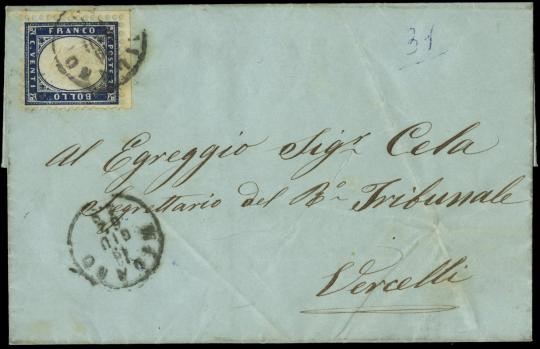 FRANCO
C. VENTI
POSTE
BOLLO
31
Al Egreggio Sigr. Cela
Segrettario del Ro. Tribunale
Vercelli
MILANO
GIU